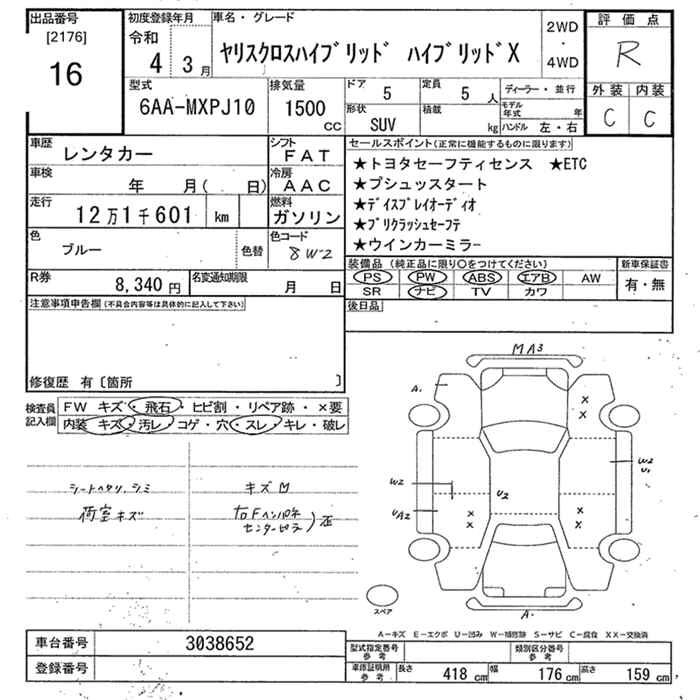 出品番号
[2176]
16
初度登録年月
令和
4 3月
車名・グレード
ヤリスクロスハイブリッド ハイブリッドX
2WD
・
4WD
評価点
R
外装 内装
C C
型式
6AA-MXPJ10
排気量
1500
cc
ドア
5
定員
5 人
形状
SUV
積載
kg
ディーラー・並行
モデル年式 年
ハンドル 左・右
車歴
レンタカー
シフト
FAT
車検
年 月( 日)
冷房
AAC
走行
12万1千601 km
燃料
ガソリン
色
ブルー
色替
色コード
8W2
セールスポイント(正常に機能するものに限ります)
★トヨタセーフティセンス ★ETC
★プシュッスタート
★ディスプレイオーディオ
★プリクラッシュセーフテ
★ウインカーミラー
R券
8,340 円
名変通知期限
月 日
装備品 (純正品に限り○をつけてください)
PS PW ABS エアB AW
SR ナビ TV カワ
新車保証書
有・無
注意事項申告欄(不具合内容等は具体的に記入して下さい)
後日品
修復歴 有〔箇所 〕
検査員記入欄
FW キズ・飛石・ヒビ割・リペア跡・×要
内装 キズ・汚レ・コゲ・穴・スレ・キレ・破レ
シートヘタリ、シミ
荷室キズ
キズ
右Fインパネ
センターピラ
歪
MA3
A.
W2
U1
W2
U2
UA2
A.
スペア
A-キズ E-エクボ U-凹み W-補修跡 S-サビ C-腐食 XX-交換済
車台番号
3038652
登録番号
型式指定番号
参考
類別区分番号
参考
車庫証明所
参考
長さ 418 cm 幅 176 cm 高さ 159 cm